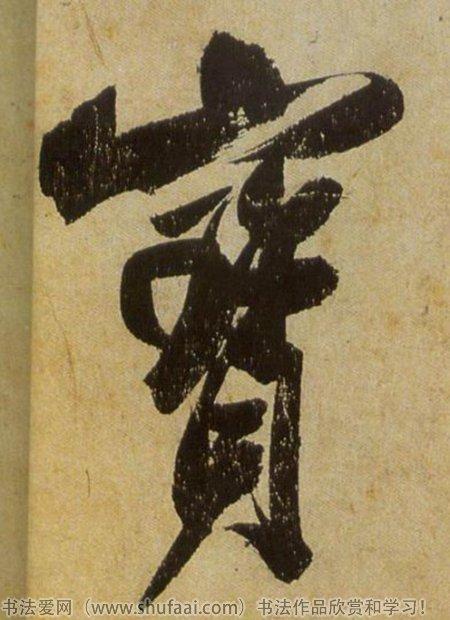 寶
书法爱网（www.shufaai.com）书法作品欣赏和学习！